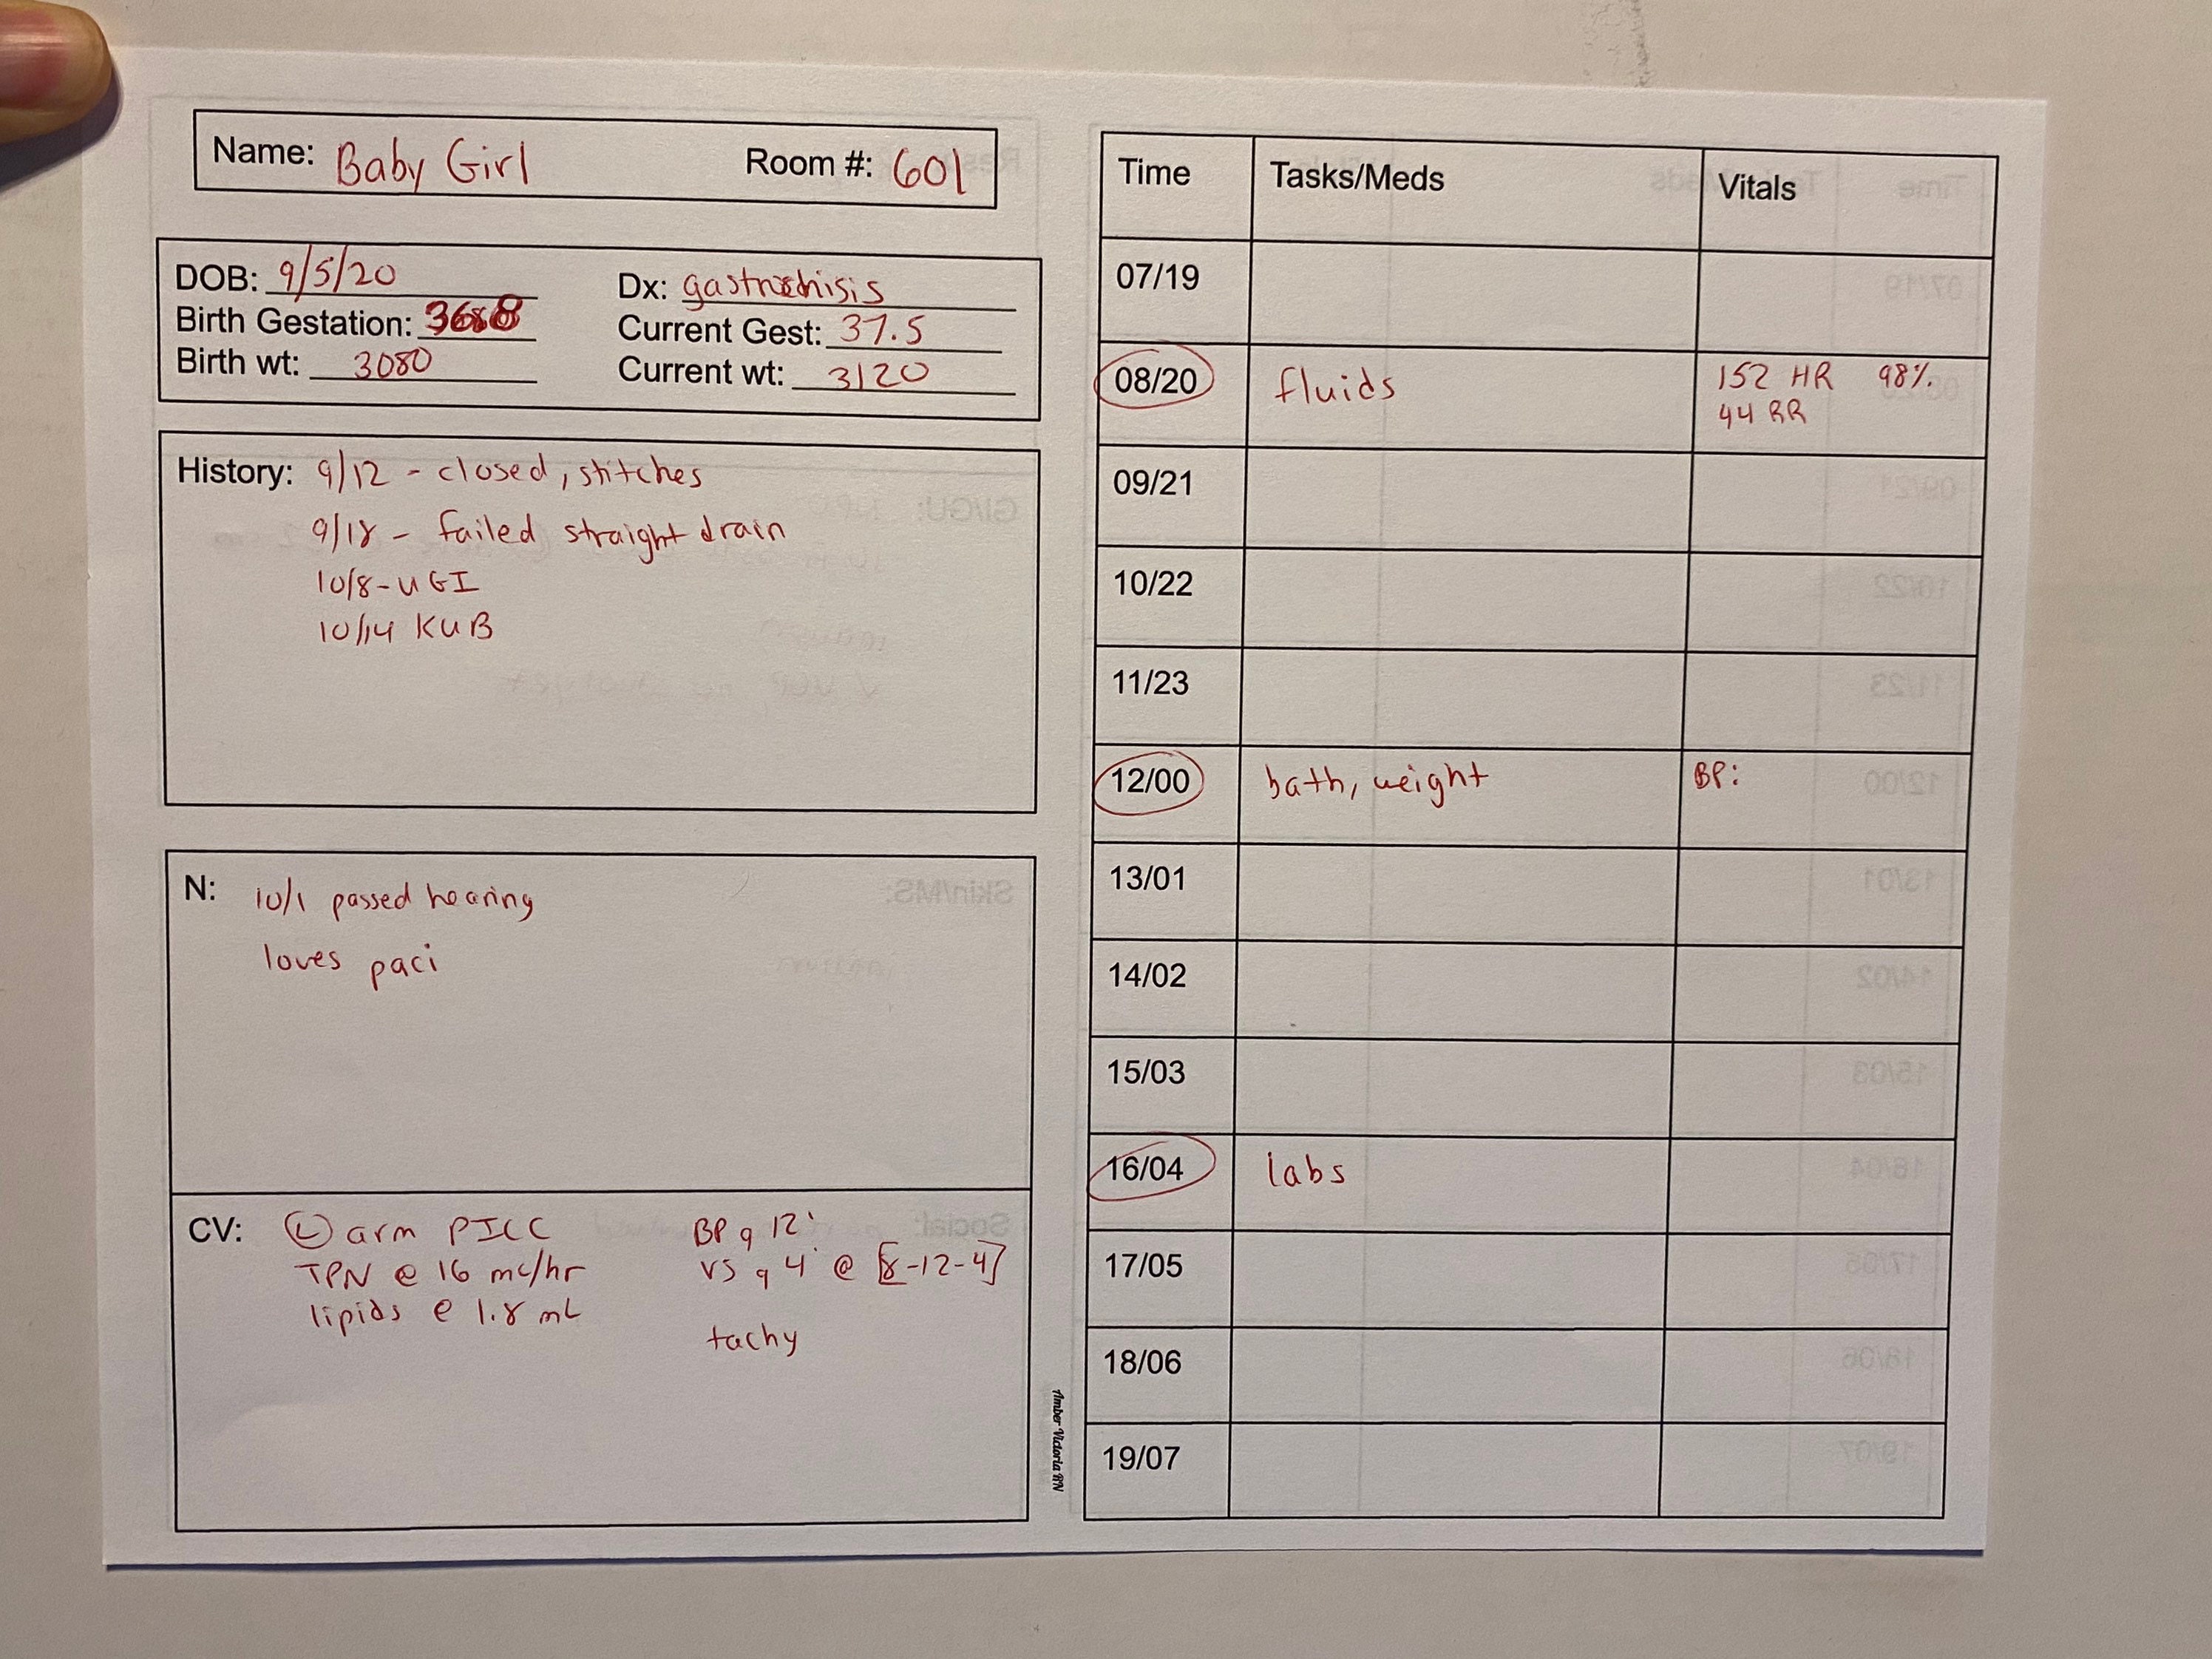 Name: Baby Girl Room #: 601
DOB: 9/5/20 Dx: gastrochisis
Birth Gestation: Current Gest: 37.5
Birth wt: 3080 Current wt: 3120
History: 9/12 - closed, stitches
9/18 - failed straight drain
10/8 - UGI
10/14 KUB
N: 10/1 passed hearing
loves paci
CV: L arm PICC BP q 12°
TPN @ 16 mL/hr VS q 4° @ [8-12-4]
lipids @ 1.8 mL
tachy
Amber Victoria RN
Time Tasks/Meds Vitals
07/19
08/20 fluids 152 HR 98%
44 RR
09/21
10/22
11/23
12/00 bath, weight BP:
13/01
14/02
15/03
16/04 labs
17/05
18/06
19/07